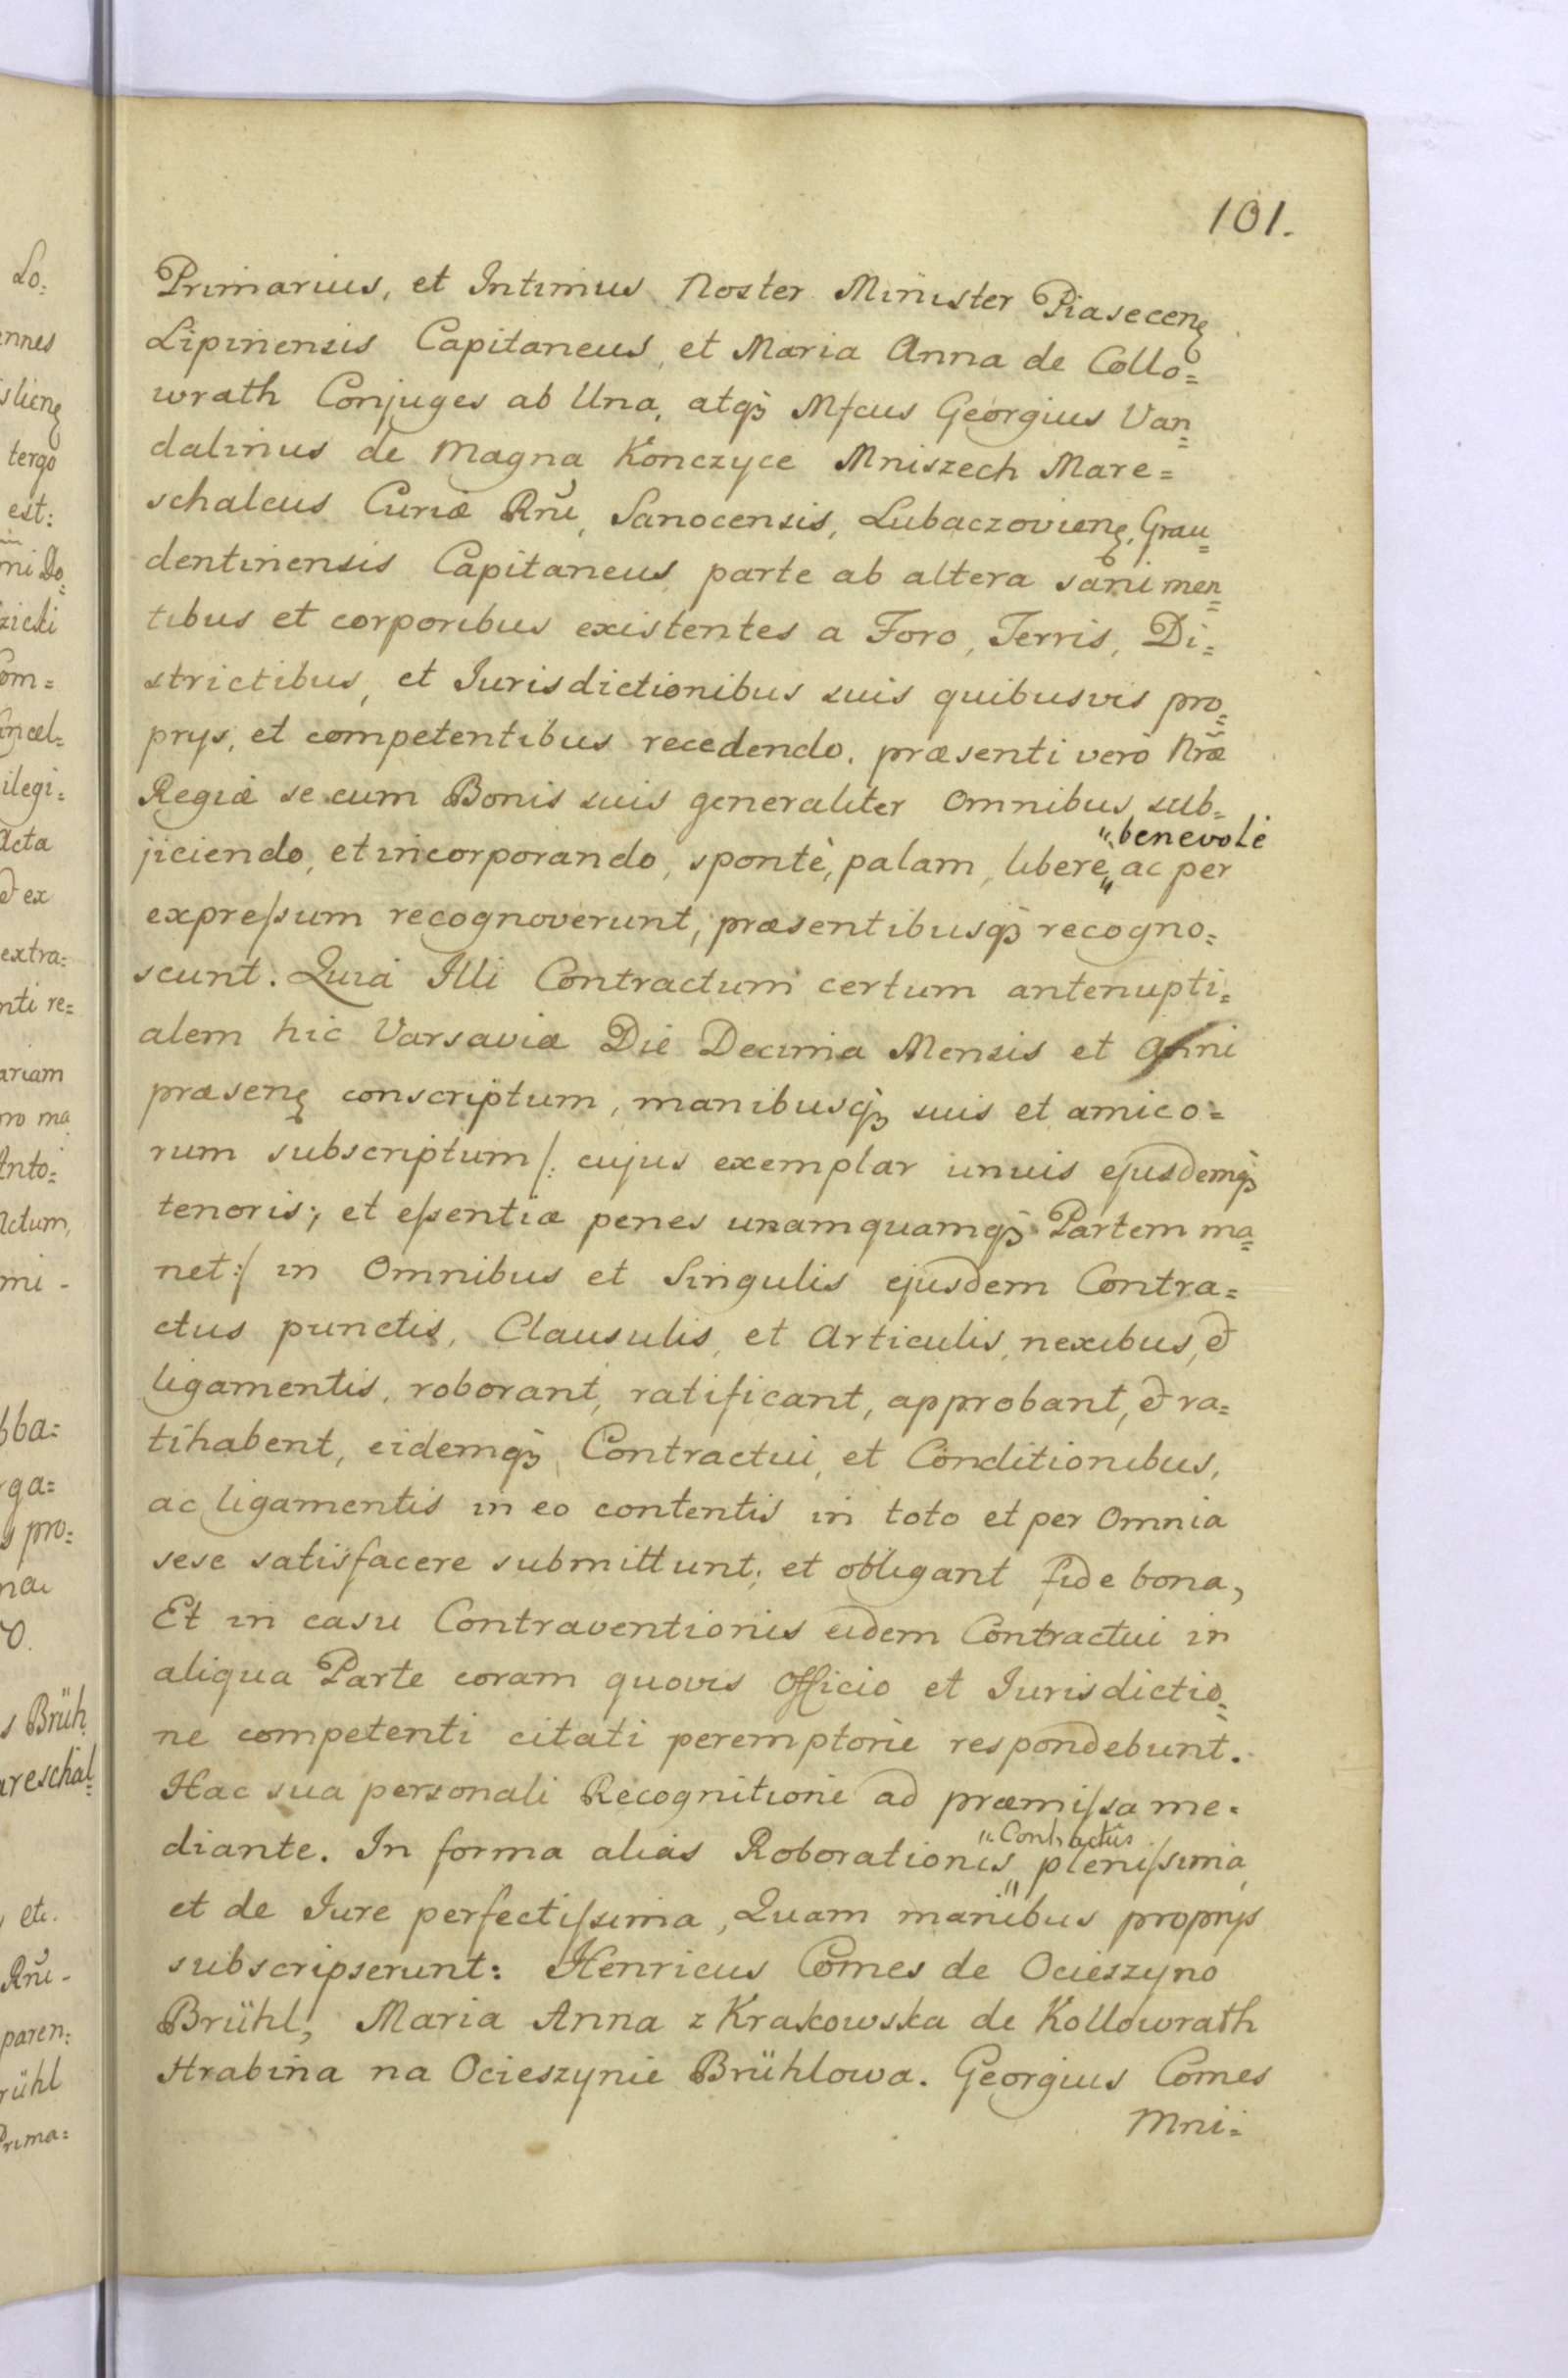 101.
Primarius, et Intimus Noster Minister Piasecenꝫ
Lipinensis Capitaneus, et Maria Anna de Collo=
wrath Conjuges ab Una, atqꝫ Mfcus Georgius Van=
dalinus de Magna Konczyce Mniszech Mare=
schalcus Curiæ Rñi, Sanocensis, Lubaczovienꝫ, Grau=
dentinensis Capitaneus parte ab altera sani men=
tibus et corporibus existentes a Foro, Terris, Di=
strictibus, et Jurisdictionibus suis quibusvis pro=
prys, et competentibus recedendo, præsenti verò Nrãe
Regiæ se cum Bonis suis generaliter omnibus sub=
jiciendo, et incorporando, spontè, palam, liberè, "benevolè" ac per
expreſsum recognoverunt, præsentibusqꝫ recogno=
scunt. Quiá Illi Contractum certum antenupti=
alem hic Varsaviæ Die Decima Mensis et Anni
præsenꝫ conscriptum, manibusqꝫ suis et amico=
rum subscriptum /: cujus exemplar unius ejusdemqꝫ
tenoris; et eſsentiæ penes unamquamqꝫ Partem ma=
net :/ in Omnibus et Singulis ejusdem Contra=
ctus punctis, Clausulis, et Articulis, nexibus, et
ligamentis, roborant, ratificant, approbant, et ra=
tihabent, eidemqꝫ Contractui, et Conditionibus,
ac ligamentis in eo contentis in toto et per Omnia
sese satisfacere submittunt; et obligant fide bona,
Et in casu Contraventionis eidem Contractui in
aliqua Parte coram quovis Officio et Jurisdictio=
ne competenti citati peremptoriè respondebunt.
Hac sua personali Recognitione ad præmiſsa me=
diante. In forma aliás Roborationis "Contractûs" pleniſsima,
et de Jure perfectiſsima, Quam manibus proprys
subscripserunt: Henricus Comes de Ocieszyno
Brühl, Maria Anna z Krakowska de Kollowrath
Hrabina na Ocieszynie Brühlowa. Georgius Comes
Mni=